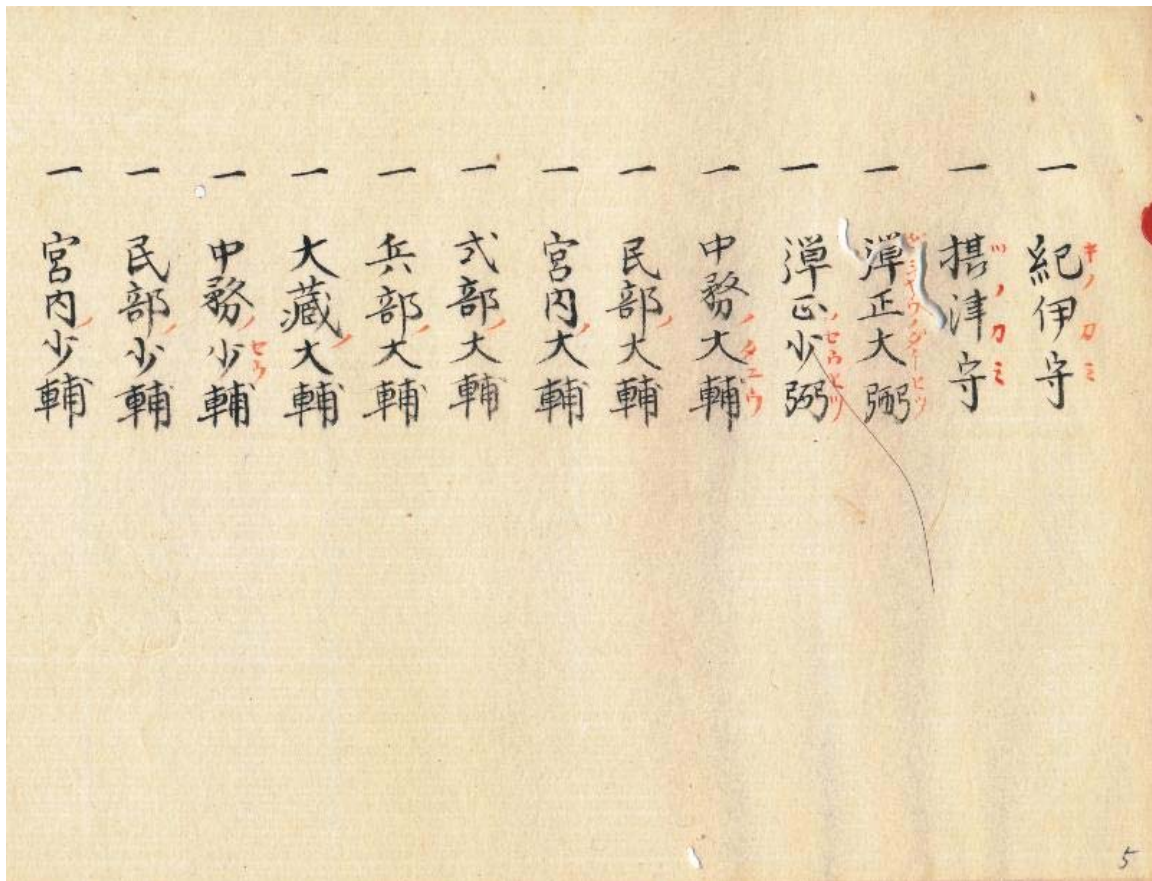 一 紀伊守
キノカミ
一 摂津守
ツノカミ
一 弾正大弼
一 弾正少弼
ノセウヒツ
一 中務大輔
ノタユウ
一 民部大輔
ノ
一 宮内大輔
ノ
一 式部大輔
ノ
一 兵部大輔
ノ
一 大蔵大輔
ノ
一 中務少輔
ノセウ
一 民部少輔
ノ
一 宮内少輔
ノ
5